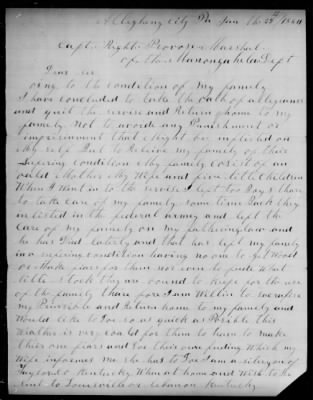 Allegheny City Pa Jan the 24th 1864
Capt. Wright Provose Marshal
of the Manongahela Dept
Dear Sir
oing to the condition of my famely
I have concluded to take the oath of allegiance
and quit the servise and Return home to my
famely Not to avoide any Punishment or
imprisonment that might be inflicted on
My self But to Releive my famely of their
Sufering condition My famely cosist of an
oald Mother My Wife and five little Children
When I went in to the servise I left too Boys
to take care of my famely some time back they
inlisted in the federal army and left the
care of my famely on my fatherinlaw and
he has Died lately and that has left my famely
in a sufering condition having no one to get Wood
or Make fiars for them nor even to feede What
little stock they are bound to keepe for the use
of the famely thare fore I am Willin to sacrafise
my Principle and Return home to my famely and
Would like to Doe so as quick as Posible this
Weather is very coald for them to have to make
thier one fiars and Doe their one feeding Which my
Wife informes me she has to Doe I am a sitizen of
County Kentucky When at home and Wish to be
sent to Louisville or Lebanon Kentucky